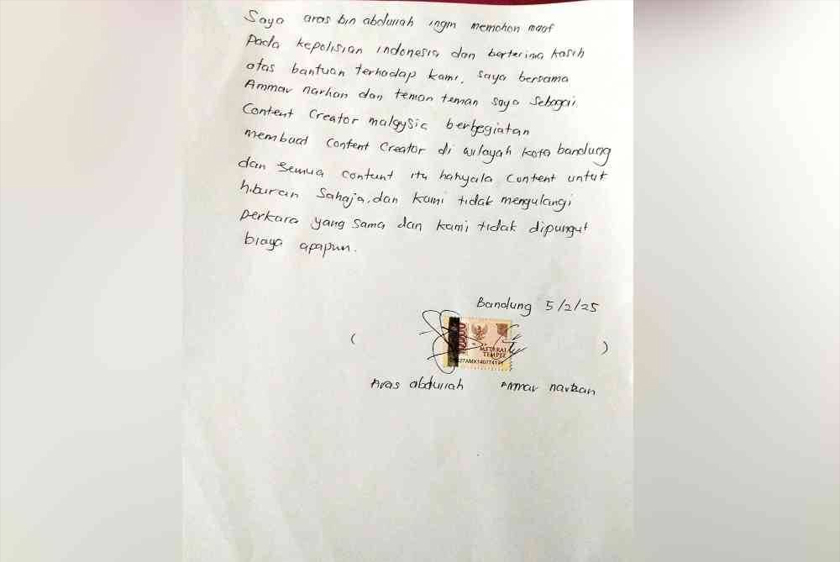 Saya aras bin abdullah ingin memohon maaf
Pada kepolisian indonesia dan berterima kasih
atas bantuan terhadap kami. saya bersama
Ammar narhan dan teman teman saya sebagai
Content Creator malaysia berkegiatan
membuat Content Creator di wilayah kota bandung
dan semua content itu hanyala content untuk
hiburan sahaja, dan kami tidak mengulangi
perkara yang sama dan kami tidak dipungut
biaya apapun.
Bandung 5/2/25
( )
10000
METERAI
TEMPEL
Aras abdullah Ammar narhan